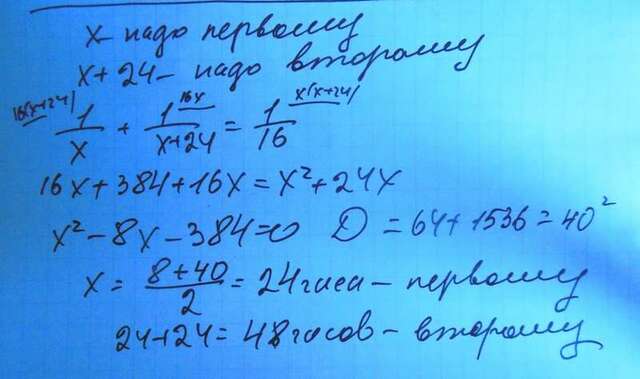 x - надо первому
x + 24 - надо второму
16(x+24) 16x x(x+24)
1/x + 1/(x+24) = 1/16
16x + 384 + 16x = x² + 24x
x² - 8x - 384 = 0 D = 64 + 1536 = 40²
x = (8+40)/2 = 24 часа - первому
24+24 = 48 часов - второму